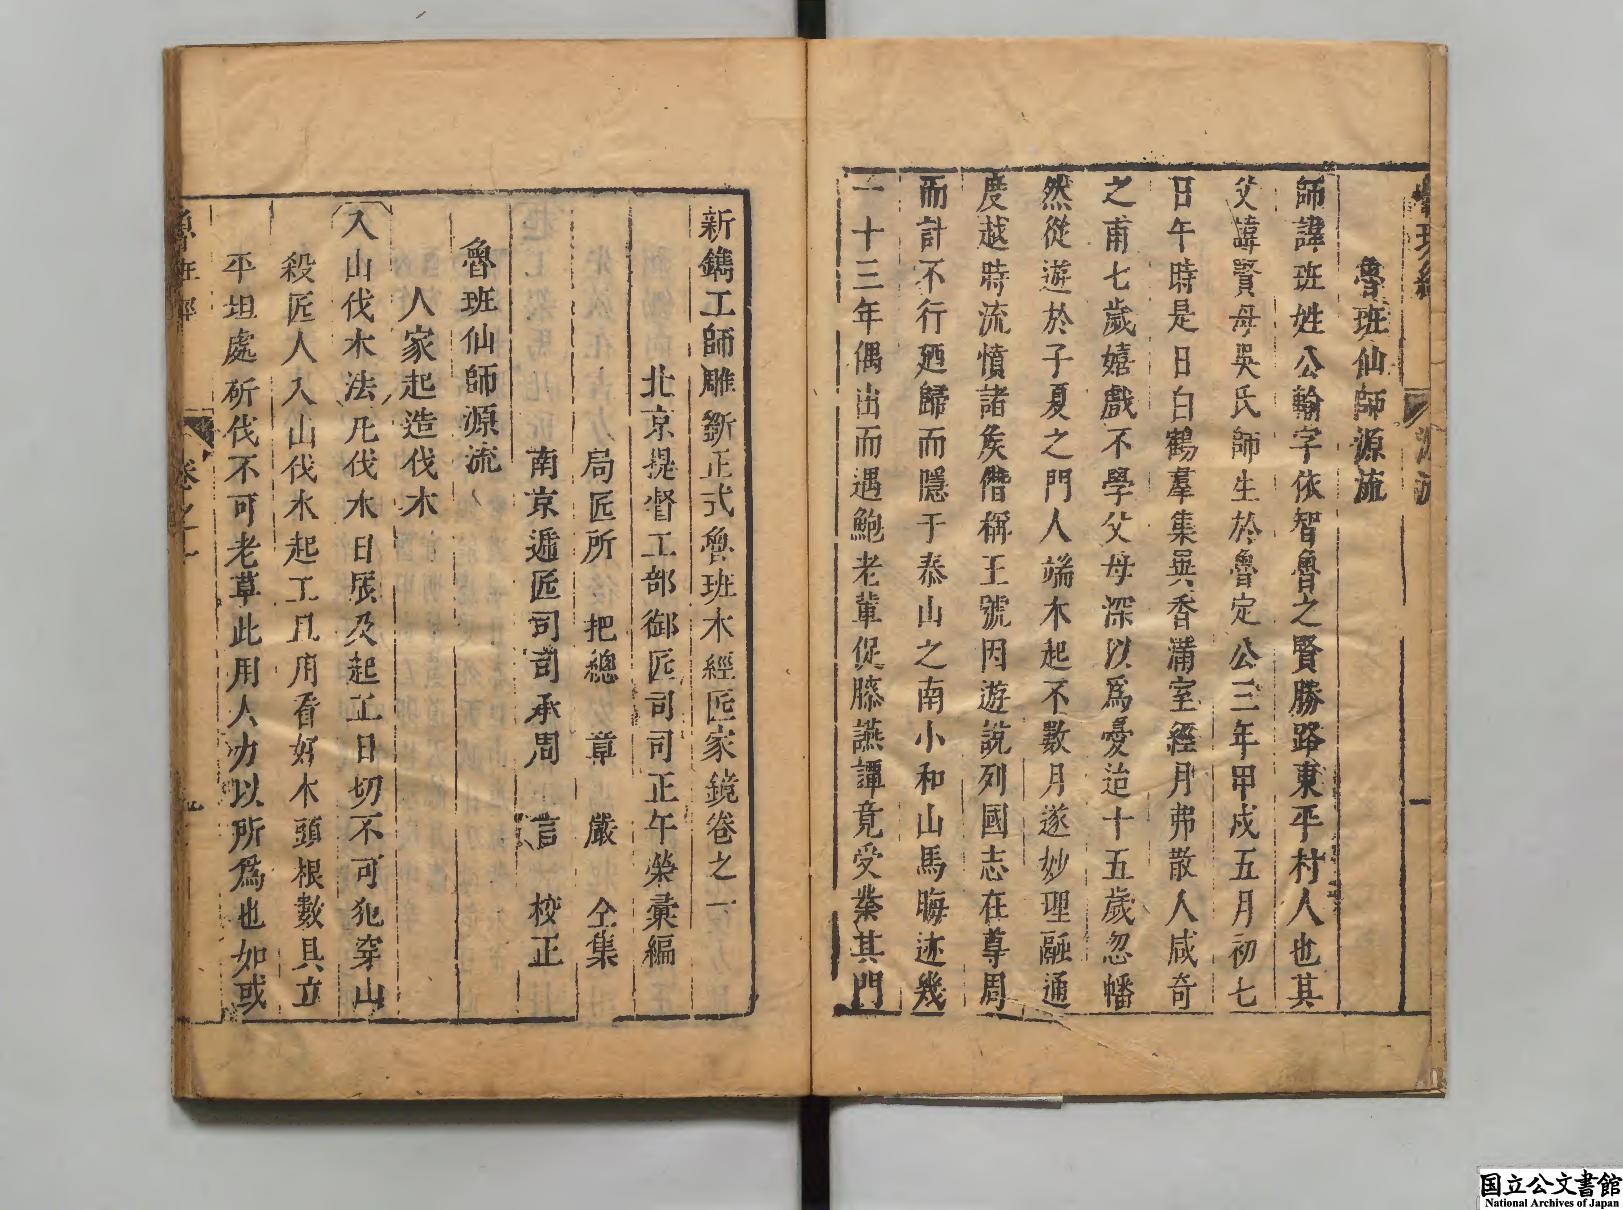 魯班仙師源流
師諱班姓公輸字依智魯之賢勝路東平村人也其
父諱賢母吳氏師生於魯定公三年甲戌五月初七
日午時是日白鶴羣集異香滿室經月弗散人咸奇
之甫七歲嬉戲不學父母深以爲憂迨十五歲忽幡
然從遊於子夏之門人端木起不數月遂妙理融通
度越時流憤諸矦僭稱王號因遊說列國志在尊周
而計不行廼歸而隱于泰山之南小和山焉晦迹幾
一十三年偶出而遇鮑老輩促膝讌譚竟受業其門
新鐫工師雕斵正式魯班木經匠家鏡卷之一
北京提督工部御匠司司正午榮彚編
局匠所 把總 章 嚴 仝集
南京遞匠司司承周 言 校正
魯班仙師源流
人家起造伐木
入山伐木法凡伐木日辰及起工日切不可犯穿山
殺匠人入山伐木起工且用看好木頭根數具立
平坦處斫伐不可老草此用人力以所爲也如或
魯班經
卷之一
国立公文書館
National Archives of Japan